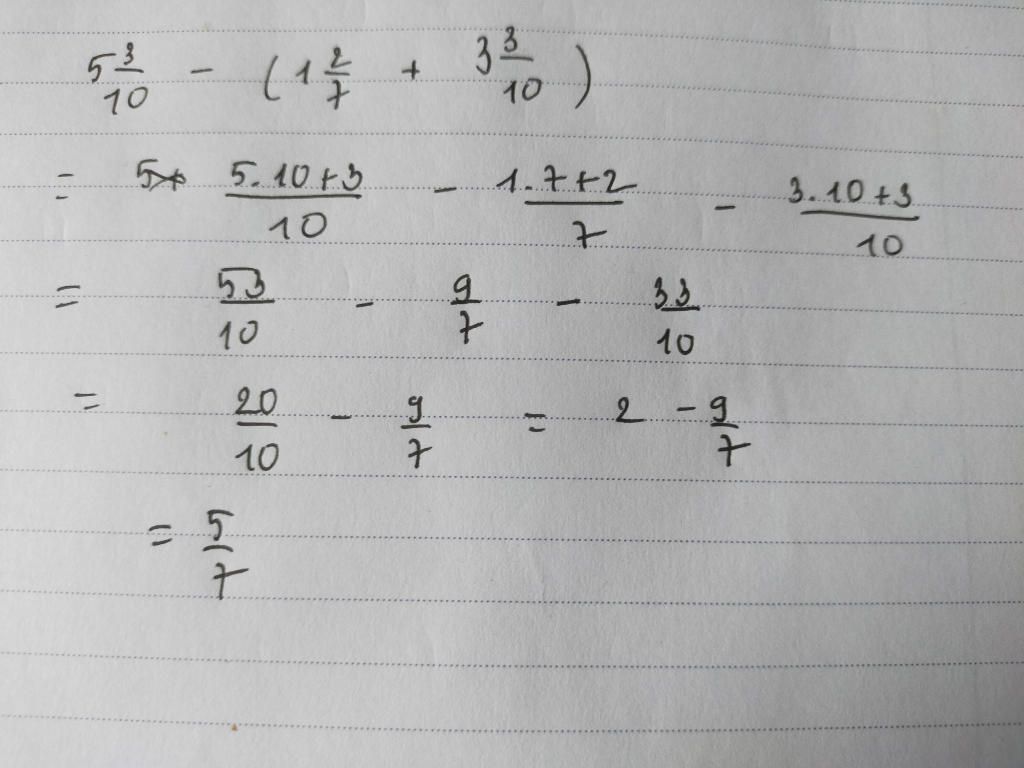 5 3/10 - (1 2/7 + 3 3/10)
= (5.10+3)/10 - (1.7+2)/7 - (3.10+3)/10
= 53/10 - 9/7 - 33/10
= 20/10 - 9/7 = 2 - 9/7
= 5/7